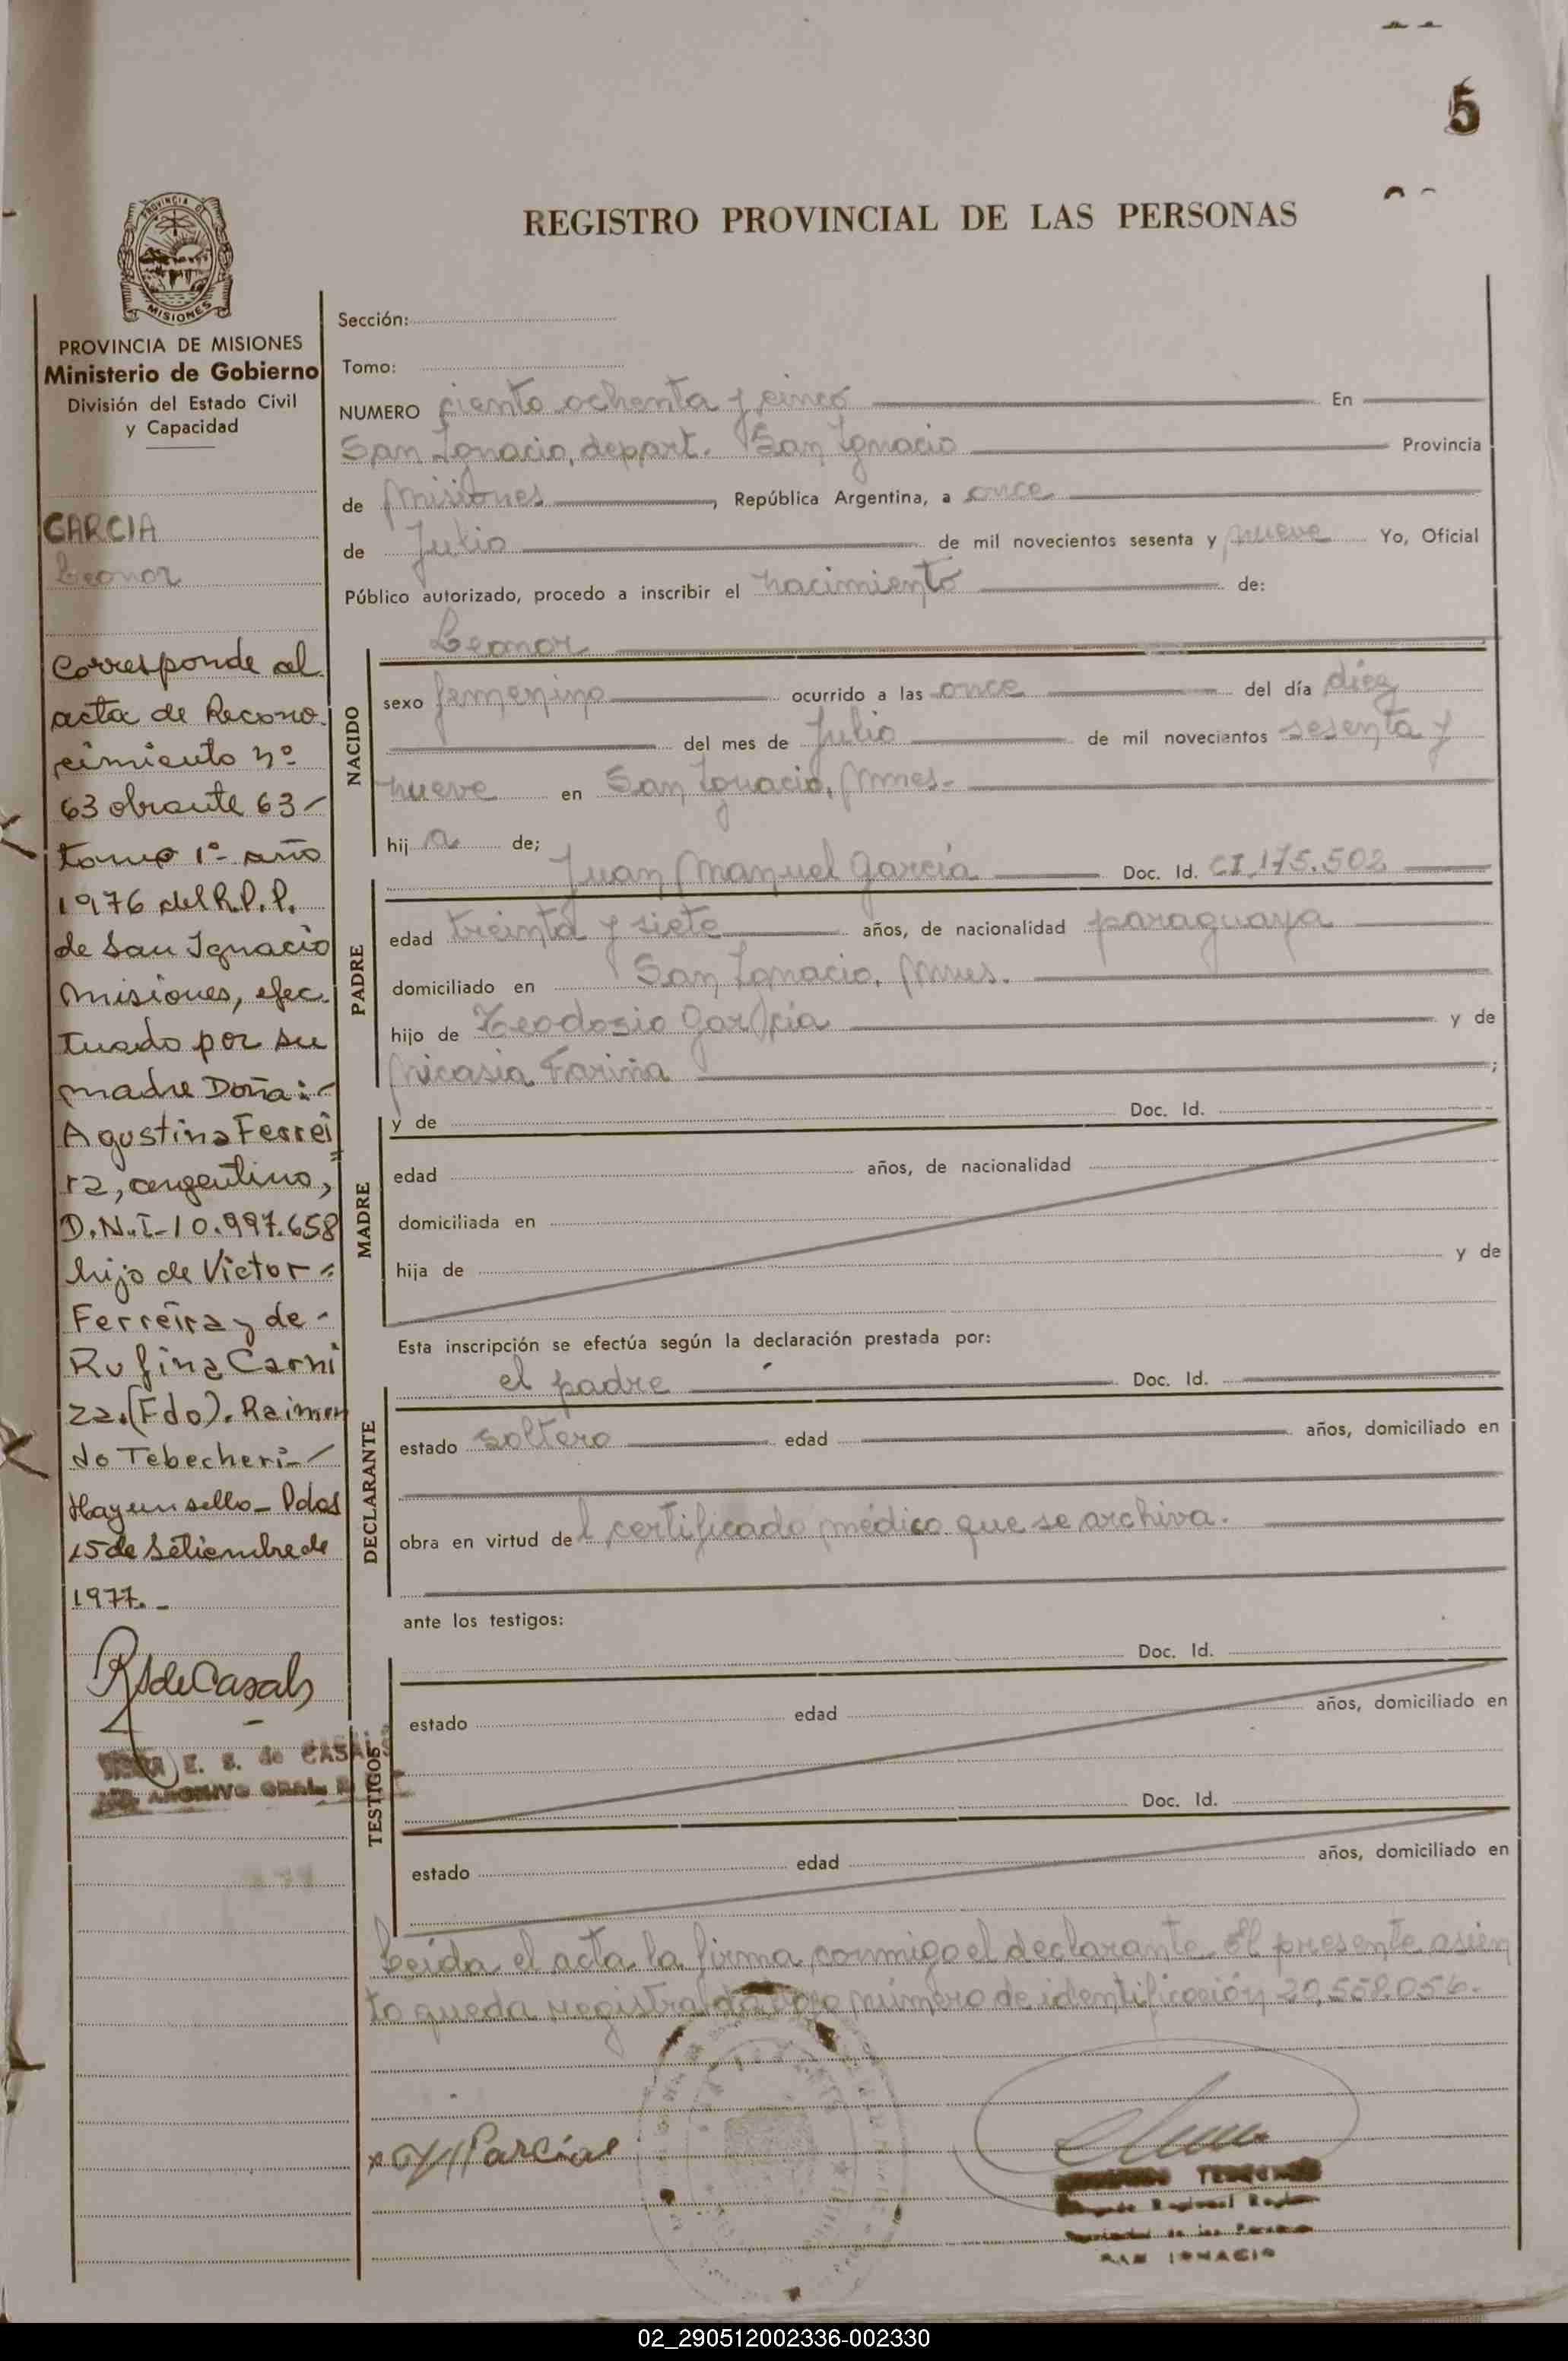 5
REGISTRO PROVINCIAL DE LAS PERSONAS
PROVINCIA DE
MISIONES
PROVINCIA DE MISIONES
Ministerio de Gobierno
División del Estado Civil
y Capacidad
GARCIA
Leonor
Corresponde al
acta de Recono-
cimiento nº
63 obrante 63-
tomo 1º- año
1976 del R.P.P.
de San Ignacio
Misiones, efec-
tuado por su
madre Doña:-
Agustina Ferrei
ra, argentino,
D.N.I-10.997.658
hijo de Victor-
Ferreira y de-
Rufina Carni
za.(Fdo). Raimun
do Tebecheri-
Hay un sello- Pdas
15 de Setiembre de
1977.-
RSdeCasals
E. S. de CASALS
ARCHIVO GRAL.
Sección:
Tomo:
NUMERO ciento ochenta y cinco En
San Ignacio, depart. San Ignacio Provincia
de Misiones, República Argentina, a once
de Julio de mil novecientos sesenta y nueve Yo, Oficial
Público autorizado, procedo a inscribir el nacimiento de:
NACIDO
Leonor
sexo femenino ocurrido a las once del día diez
del mes de Julio de mil novecientos sesenta y
nueve en San Ignacio, Mnes.-
hij a de;
PADRE
Juan Manuel García Doc. Id. CI.175.502
edad treinta y siete años, de nacionalidad paraguaya
domiciliado en San Ignacio, Mnes.
hijo de Teodosio García y de
Nicasia Fariña ;
MADRE
y de Doc. Id.
edad años, de nacionalidad
domiciliada en
hija de y de
Esta inscripción se efectúa según la declaración prestada por:
DECLARANTE
el padre Doc. Id.
estado soltero edad años, domiciliado en
obra en virtud del certificado médico que se archiva.
ante los testigos:
TESTIGOS
Doc. Id.
estado edad años, domiciliado en
Doc. Id.
estado edad años, domiciliado en
Leida el acta la firma conmigo el declarante. El presente asien
to queda registrado bajo número de identificación 20,558.056.
SAN IGNACIO
02_290512002336-002330